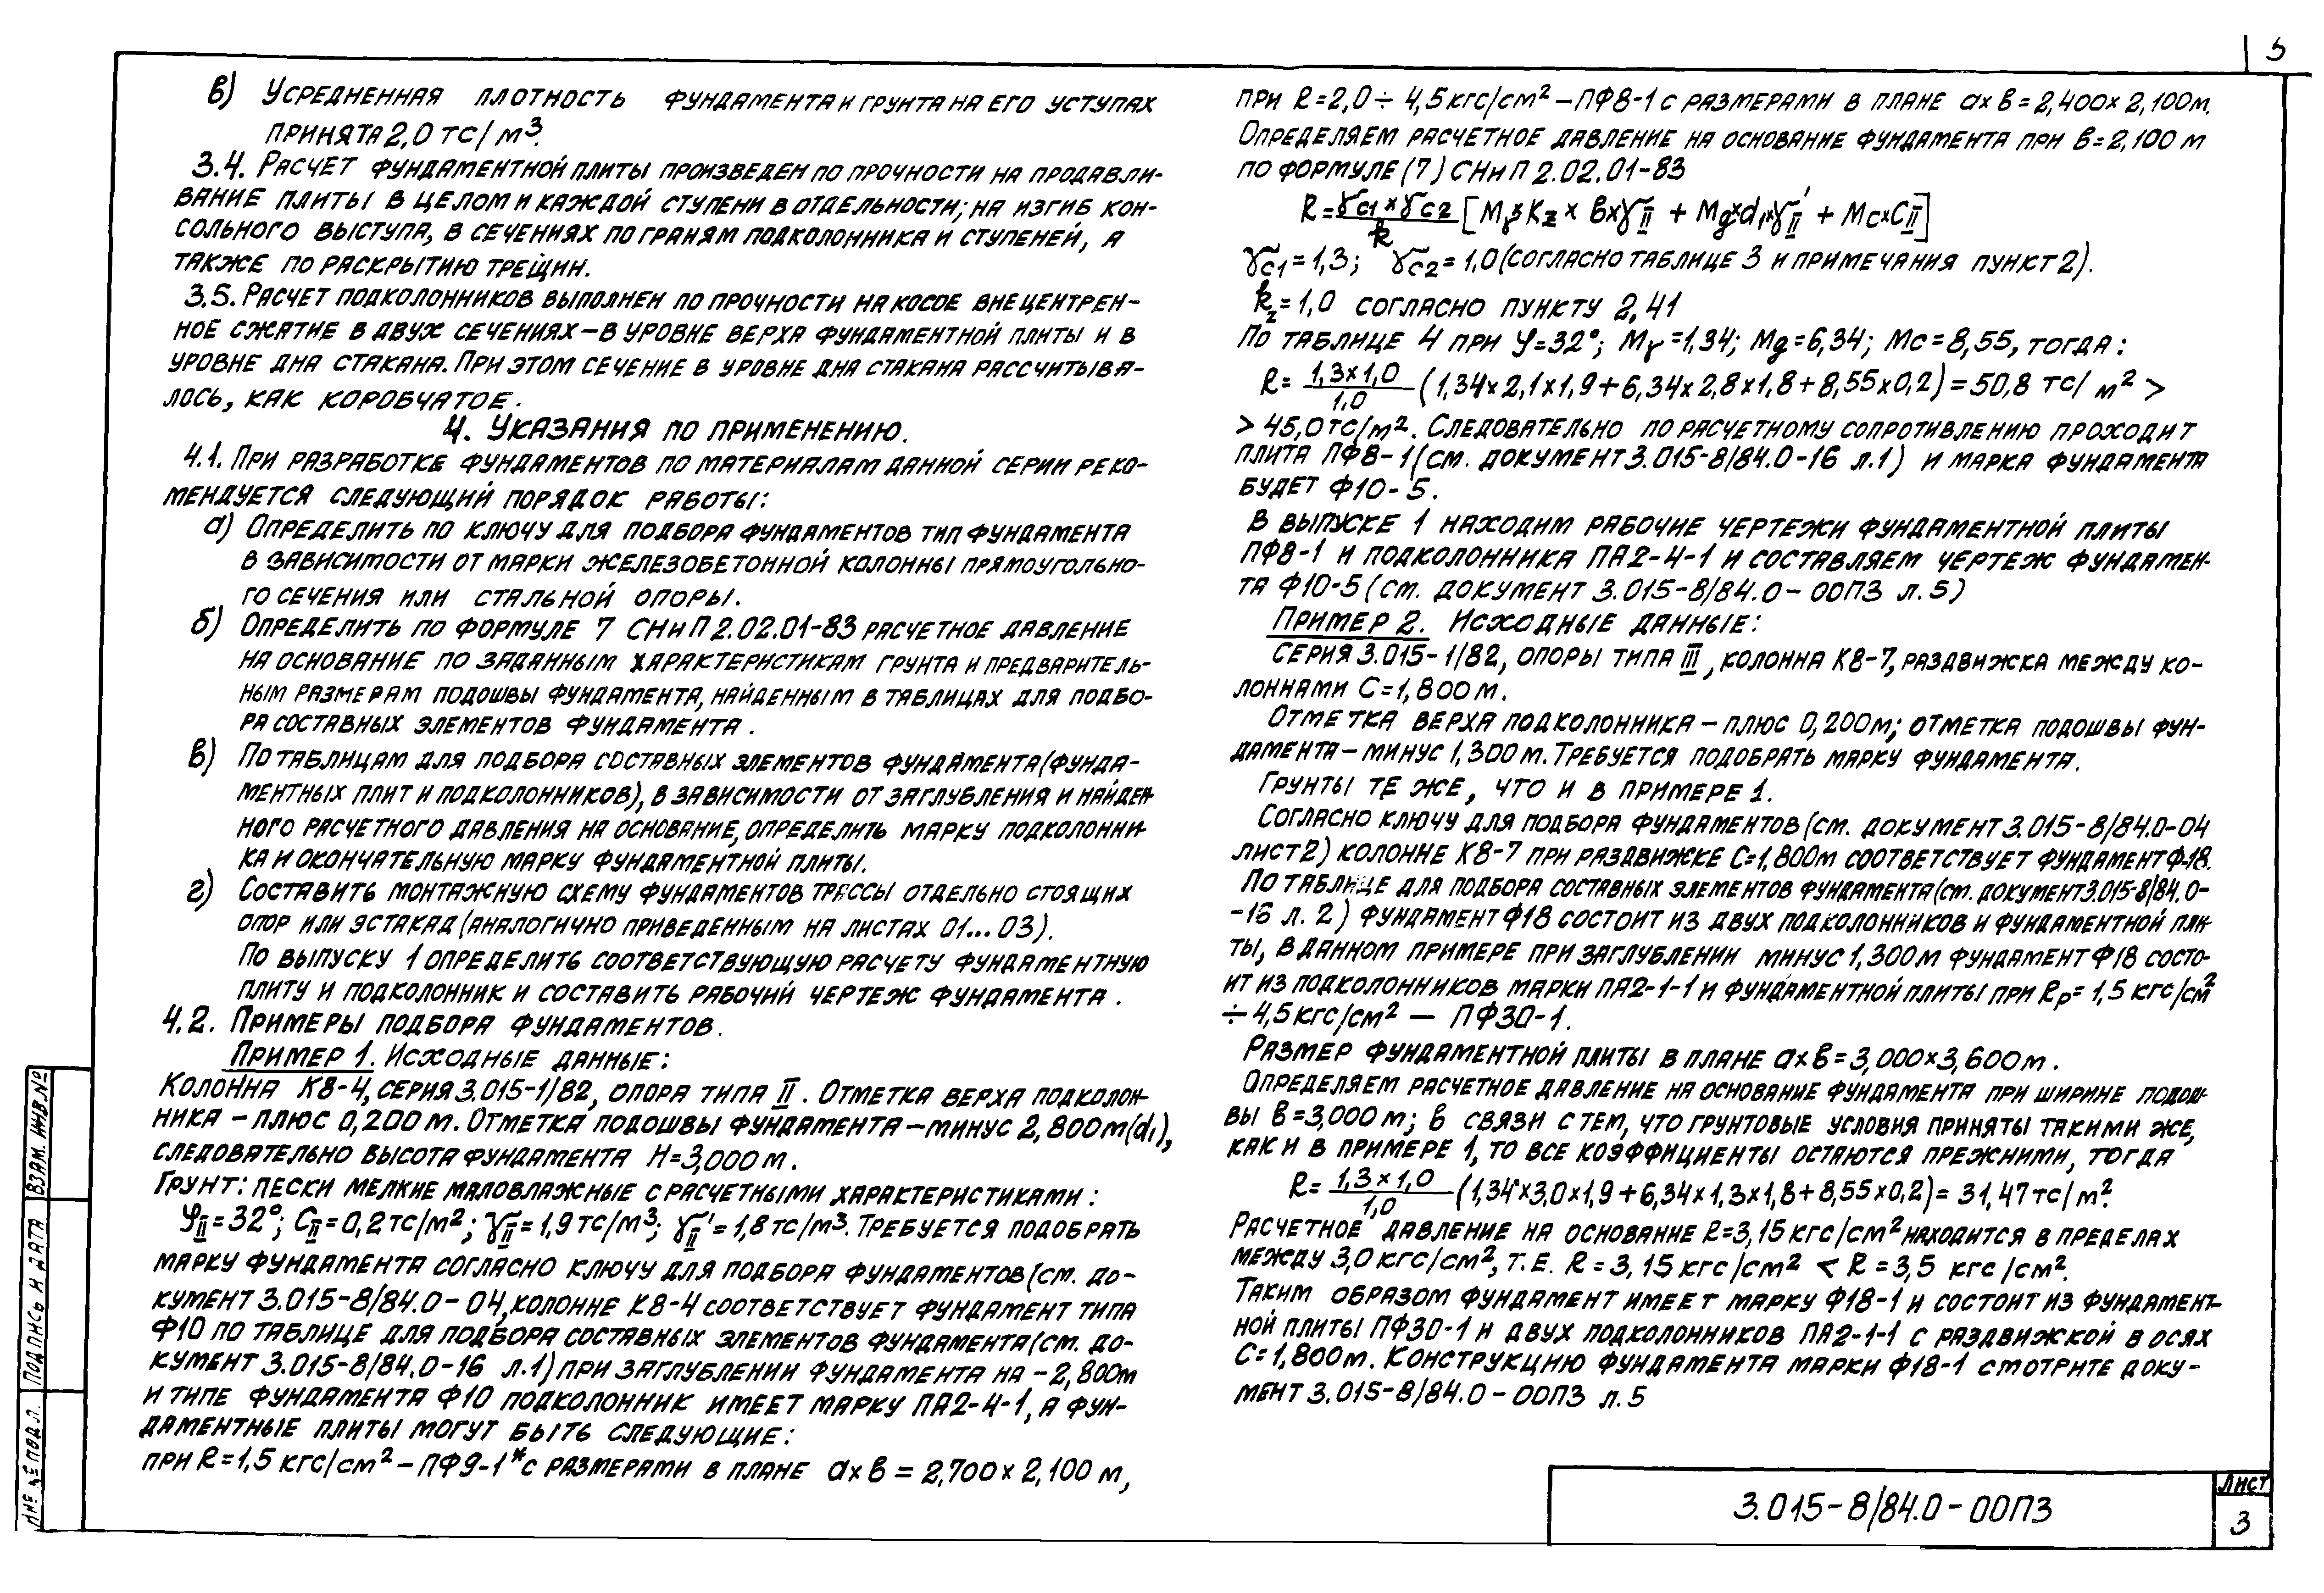 5
в) Усредненная плотность фундамента и грунта на его уступах
принята 2,0 тс/м³.
3.4. Расчет фундаментной плиты произведен по прочности на продавли-
вание плиты в целом и каждой ступени в отдельности; на изгиб кон-
сольного выступа, в сечениях по граням подколонника и ступеней, а
также по раскрытию трещин.
3.5. Расчет подколонников выполнен по прочности на косое внецентрен-
ное сжатие в двух сечениях – в уровне верха фундаментной плиты и в
уровне дна стакана. При этом сечение в уровне дна стакана рассчитыва-
лось, как коробчатое.
4. Указания по применению.
4.1. При разработке фундаментов по материалам данной серии реко-
мендуется следующий порядок работы:
а) Определить по ключу для подбора фундаментов тип фундамента
в зависимости от марки железобетонной колонны прямоугольно-
го сечения или стальной опоры.
б) Определить по формуле 7 СНиП 2.02.01-83 расчетное давление
на основание по заданным характеристикам грунта и предваритель-
ным размерам подошвы фундамента, найденным в таблицах для подбо-
ра составных элементов фундамента.
в) По таблицам для подбора составных элементов фундамента (фунда-
ментных плит и подколонников), в зависимости от заглубления и найден
ного расчетного давления на основание, определить марку подколонни-
ка и окончательную марку фундаментной плиты.
г) Составить монтажную схему фундаментов трассы отдельно стоящих
опор или эстакад (аналогично приведенным на листах 01...03).
По выпуску 1 определить соответствующую расчету фундаментную
плиту и подколонник и составить рабочий чертеж фундамента.
4.2. Примеры подбора фундаментов.
Пример 1. Исходные данные:
Колонна К8-4, серия 3.015-1/82, опора типа II. Отметка верха подколон-
ника – плюс 0,200 м. Отметка подошвы фундамента – минус 2,800 м (d₁),
следовательно высота фундамента Н=3,000 м.
Грунт: пески мелкие маловлажные с расчетными характеристиками:
φII=32°; СII=0,2 тс/м²; γII=1,9 тс/м³; γII'=1,8 тс/м³. Требуется подобрать
марку фундамента согласно ключу для подбора фундаментов (см. до-
кумент 3.015-8/84.0-04, колонне К8-4 соответствует фундамент типа
Ф10 по таблице для подбора составных элементов фундамента (см. до-
кумент 3.015-8/84.0-16 л.1) при заглублении фундамента на -2,800м
и типе фундамента Ф10 подколонник имеет марку ПА2-4-1, а фун-
даментные плиты могут быть следующие:
при R=1,5 кгс/см² – ПФ9-1* с размерами в плане а×в = 2,700×2,100 м,
при R=2,0÷4,5кгс/см² – ПФ8-1 с размерами в плане а×в=2,400×2,100м.
Определяем расчетное давление на основание фундамента при в=2,100 м
по формуле (7) СНиП 2.02.01-83
R= γс1×γс2 / k [Mγ×Kz×в×γII + Mg×d₁×γII' + Mc×CII]
γс1=1,3; γс2=1,0 (согласно таблице 3 и примечания пункт 2).
kz=1,0 согласно пункту 2,41
По таблице 4 при φ=32°; Мγ=1,34; Мg=6,34; Мс=8,55, тогда:
R= 1,3×1,0 / 1,0 (1,34×2,1×1,9+6,34×2,8×1,8+8,55×0,2)=50,8 тс/м² >
> 45,0тс/м². Следовательно по расчетному сопротивлению проходит
плита ПФ8-1 (см. документ 3.015-8/84.0-16 л.1) и марка фундамента
будет Ф10-5.
В выпуске 1 находим рабочие чертежи фундаментной плиты
ПФ8-1 и подколонника ПА2-4-1 и составляем чертеж фундамен-
та Ф10-5 (см. документ 3.015-8/84.0-00ПЗ л.5)
Пример 2. Исходные данные:
Серия 3.015-1/82, опоры типа III, колонна К8-7, раздвижка между ко-
лоннами С=1,800 м.
Отметка верха подколонника – плюс 0,200м; отметка подошвы фун-
дамента – минус 1,300м. Требуется подобрать марку фундамента.
Грунты те же, что и в примере 1.
Согласно ключу для подбора фундаментов (см. документ 3.015-8/84.0-04
лист 2) колонне К8-7 при раздвижке С=1,800м соответствует фундамент Ф-18.
По таблице для подбора составных элементов фундамента (см. документ 3.015-8/84.0-
-16 л. 2) фундамент Ф18 состоит из двух подколонников и фундаментной пли
ты, в данном примере при заглублении минус 1,300м фундамент Ф18 состо-
ит из подколонников марки ПА2-1-1 и фундаментной плиты при Rр=1,5 кгс/см²
÷4,5кгс/см² – ПФ30-1.
Размер фундаментной плиты в плане а×в=3,000×3,600м.
Определяем расчетное давление на основание фундамента при ширине подош-
вы в=3,000 м; в связи с тем, что грунтовые условия приняты такими же,
как и в примере 1, то все коэффициенты остаются прежними, тогда
R= 1,3×1,0 / 1,0 (1,34×3,0×1,9+6,34×1,3×1,8+8,55×0,2)=31,47тс/м².
Расчетное давление на основание R=3,15кгс/см² находится в пределах
между 3,0кгс/см², т.е. R=3,15кгс/см² < R=3,5 кгс/см².
Таким образом фундамент имеет марку Ф18-1 и состоит из фундамент-
ной плиты ПФ30-1 и двух подколонников ПА2-1-1 с раздвижкой в осях
С=1,800м. Конструкцию фундамента марки Ф18-1 смотрите доку-
мент 3.015-8/84.0-00ПЗ л.5
Взам. инв.№
Подпись и дата
Инв.№ подл.
3.015-8/84.0-00ПЗ
Лист
3